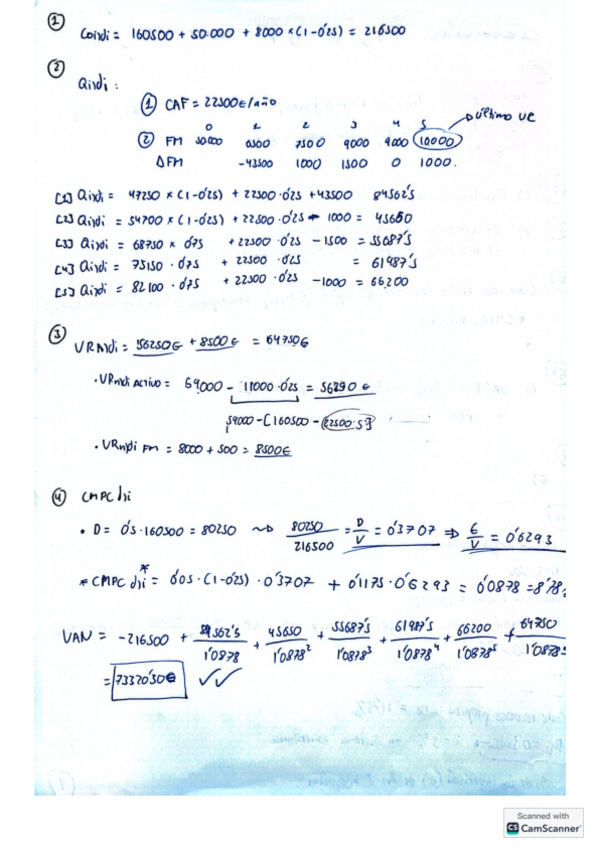 ① Coindi = 160500 + 50.000 + 8000 × (1-0'25) = 216500
② Qindi :
① CAF = 22500€/año
0 1 2 3 4 5 → último VR
② FM 50000 6500 7500 9000 9000 10000
ΔFM -43500 1000 1500 0 1000.
[1] Qindi = 47250 × (1-0'25) + 22500·0'25 + 43500 84562'5
[2] Qindi = 54700 × (1-0'25) + 22500·0'25 - 1000 = 45650
[3] Qindi = 68750 × 0'75 + 22500·0'25 - 1500 = 55687'5
[4] Qindi = 75150 · 0'75 + 22500·0'25 = 61987'5
[5] Qindi = 82100 · 0'75 + 22500·0'25 - 1000 = 66200
③ VRNdi = 56250€ + 8500€ = 64750€
· VRndi ACTIVO = 59000 - 11000·0'25 = 56250 €
59000 - [160500 - (22500·5)]
· VRndi FM = 8000 + 500 = 8500€
④ CMPC di
· D = 0'5 · 160500 = 80250 → 80250/216500 = D/V = 0'3707 ⇒ E/V = 0'6293
* CMPC di* = 0'05 · (1-0'25) · 0'3707 + 0'1175 · 0'6293 = 0'0878 = 8'78
VAN = -216500 + 84562'5/1'0878 + 45650/1'0878² + 55687'5/1'0878³ + 61987'5/1'0878⁴ + 66200/1'0878⁵ + 64750/1'0878⁵
= 73320'30€ ✓✓
Scanned with
CS CamScanner